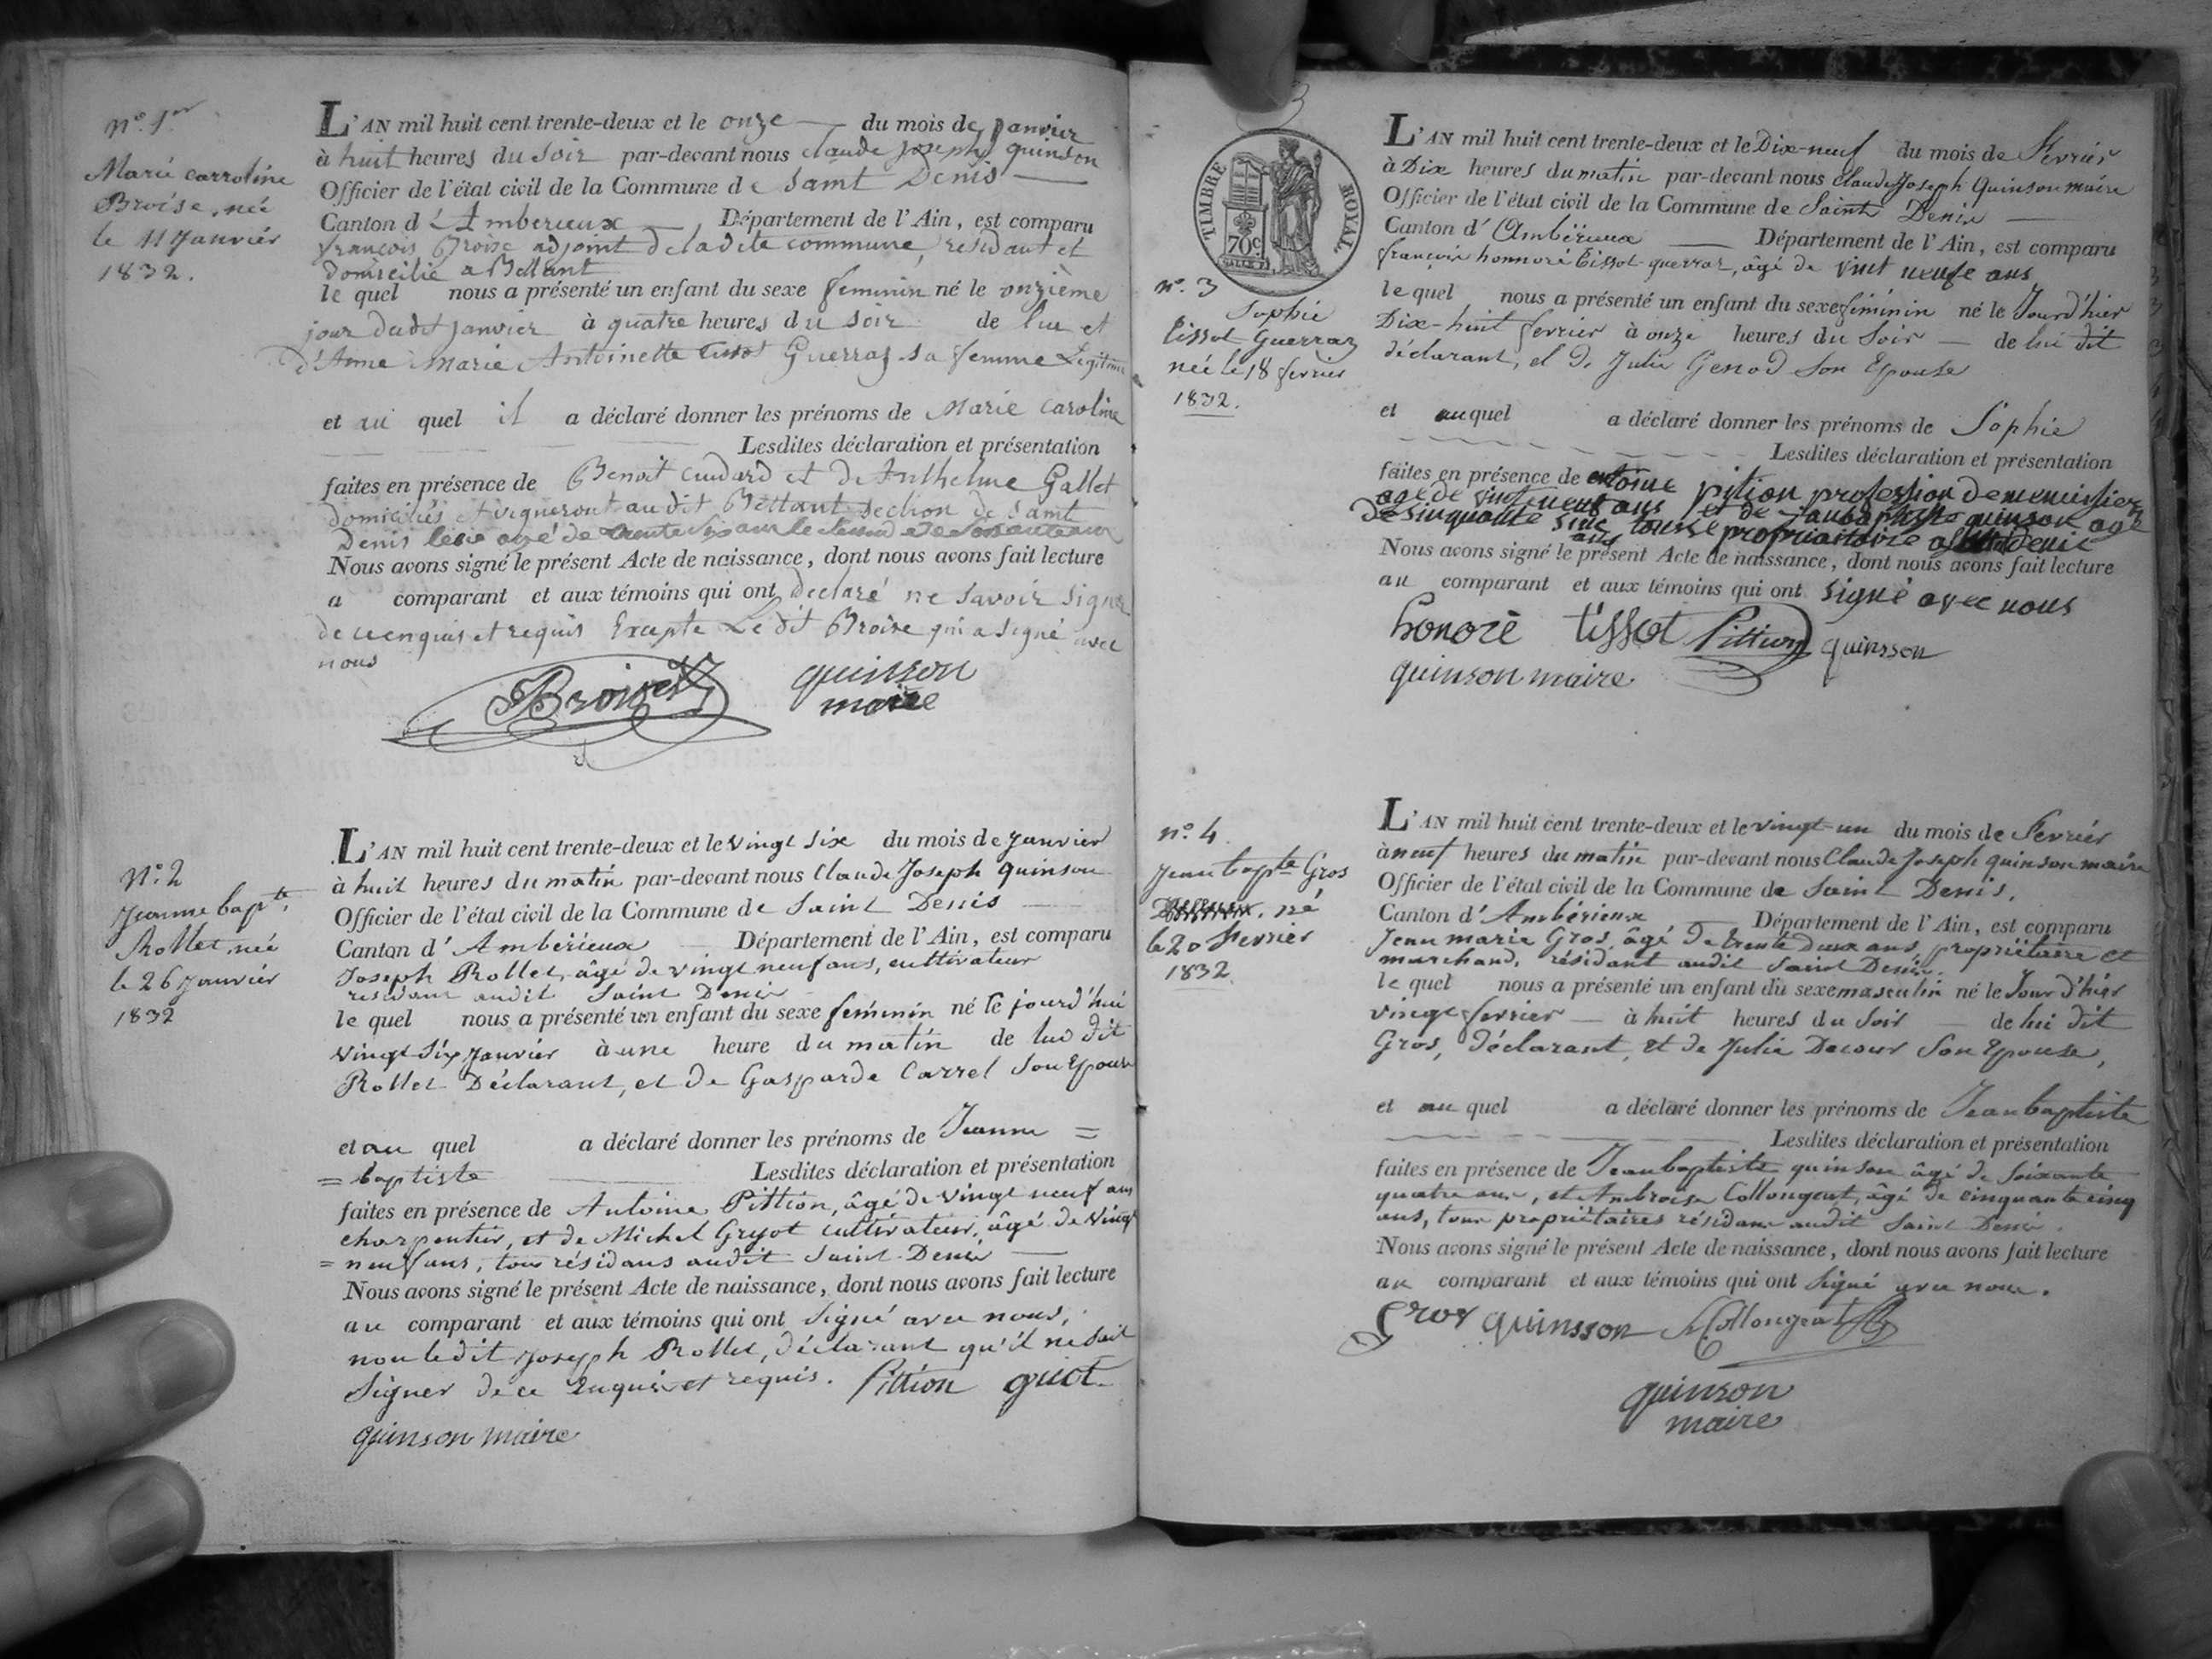 N.° 1.er
Marie carroline
Broise, née
le 11 Janvier
1832.
L'AN mil huit cent trente-deux et le onze du mois de Janvier
à huit heures du Soir par-devant nous claude Joseph quinson
Officier de l'état civil de la Commune de Saint Denis
Canton d'Amberieux Département de l'Ain, est comparu
françois Broise adjoint de la dite commune, residant et
domicilié a Bettant
le quel nous a présenté un enfant du sexe feminin né le onzième
jour dudit Janvier à quatre heures du soir de lui et
d'Anne Marie Antoinette tissot Guerraz sa femme Legitime
et au quel il a déclaré donner les prénoms de Marie Caroline
Lesdites déclaration et présentation
faites en présence de Benoit cudard et de Anthelme Gallet
domiciliés et vignerons audit Bettant section de Saint
Denis
Nous avons signé le présent Acte de naissance, dont nous avons fait lecture
a comparant et aux témoins qui ont declaré ne savoir signer
de ce enquis et requis Excepté Le dit Broise qui a signé avec
nous
Broise quinson
maire
N.° 2
Jeanne bapte
Rollet, née
le 26 Janvier
1832
L'AN mil huit cent trente-deux et le vingt six du mois de Janvier
à huit heures du matin par-devant nous Claude Joseph quinson
Officier de l'état civil de la Commune de Saint Denis
Canton d'Ambérieux Département de l'Ain, est comparu
Joseph Rollet, âgé de vingt neuf ans, cultivateur
résidant audit Saint Denis
le quel nous a présenté un enfant du sexe féminin né le jourd'hui
vingt six Janvier à une heure du matin de lui dit
Rollet Déclarant, et de Gasparde Carrel Son Epouse
et au quel a déclaré donner les prénoms de Jeanne =
= baptiste Lesdites déclaration et présentation
faites en présence de Antoine Pittion, âgé de vingt neuf ans
charpentier, et de Michel Gryot cultivateur, âgé de vingt
= neuf ans, tous résidans audit Saint Denis
Nous avons signé le présent Acte de naissance, dont nous avons fait lecture
au comparant et aux témoins qui ont Signé avec nous,
non ledit Joseph Rollet, déclarant qu'il ne Sait
Signer de ce Enquis et requis. Pittion guiot
quinson maire
3
TIMBRE ROYAL
70c
n.° 3
Sophie
Tissot Guerraz
née le 18 fevrier
1832.
L'AN mil huit cent trente-deux et le Dix-neuf du mois de Fevrier
à Dix heures du matin par-devant nous Claude Joseph Quinson maire
Officier de l'état civil de la Commune de Saint Denis
Canton d'Ambérieux Département de l'Ain, est comparu
françois honnoré tissot guerraz, âgé de vint neufe ans
le quel nous a présenté un enfant du sexe féminin né le Jourd'hier
Dix-huit fevrier à onze heures du Soir de lui dit
déclarant, et de Julie Genod son Epouse
et au quel a déclaré donner les prénoms de Sophie
Lesdites déclaration et présentation
faites en présence de entoine pition profession de menuisier
agé de vint neuf ans et de Janbaptiste quinson agé
de sinquante sinc ans tousse propriaitaire a st denie
Nous avons signé le présent Acte de naissance, dont nous avons fait lecture
au comparant et aux témoins qui ont signé avec nous
honorè tissot Pittion quinsson
quinson maire
n.° 4
Jean bapte Gros
né
le 20 Fevrier
1832.
L'AN mil huit cent trente-deux et le vingt-un du mois de Fevrier
à neuf heures du matin par-devant nous Claude Joseph quinson maire
Officier de l'état civil de la Commune de Saint Denis.
Canton d'Ambérieux Département de l'Ain, est comparu
Jean marie Gros, âgé de trente deux ans, propriétaire et
marchand, résidant audit Saint Denis.
le quel nous a présenté un enfant du sexe masculin né le Jour d'hier
vingt fevrier à huit heures du Soir de lui dit
Gros, déclarant, et de Julie Decour Son Epouse,
et au quel a déclaré donner les prénoms de Jean baptiste
Lesdites déclaration et présentation
faites en présence de Jean baptiste quinson âgé de Soixante
quatre ans, et Ambroise Collongeat, âgé de cinquante cinq
ans, tous propriétaires résidans audit Saint Denis.
Nous avons signé le présent Acte de naissance, dont nous avons fait lecture
au comparant et aux témoins qui ont Signé avec nous.
Gros quinsson Collongeat
quinson
maire